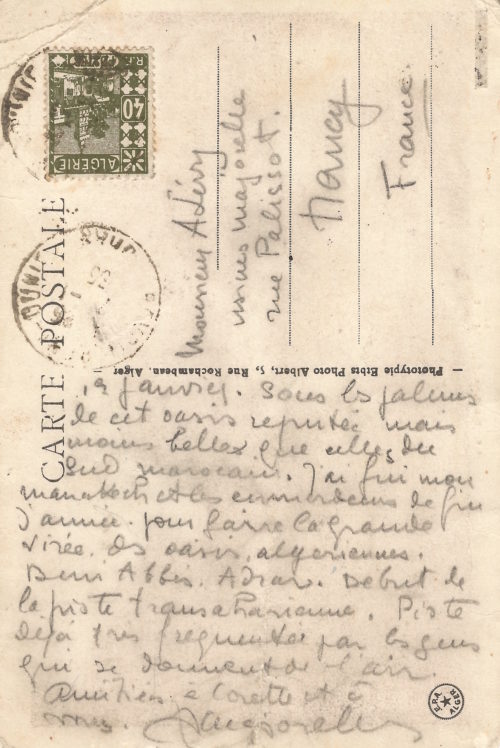 CARTE POSTALE
R.F. POSTES
40
ALGÉRIE
Monsieur A Lévy
usines majorelle
rue Palissot.
Nancy
France.
— Phototypie Etbts Photo Albert, 5, Rue Rochambeau, Alger —
Janvier. Sous les palmiers
de cet oasis réputée mais
moins belles que celles du
Sud marocain. J'ai fui mon
marrakech et les de fin
d'année pour faire la grande
virée des oasis algériennes.
Beni Abbès. Adrar. Début de
la piste transaharienne. Piste
déjà très fréquentée par les gens
qui se donnent de l'air.
Amitiés à Lorette et à
vous. J Majorelle
E.P.A. ALGER